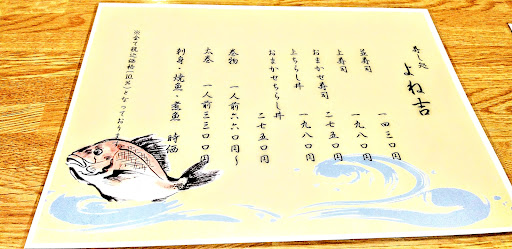 寿し処
よね吉
並寿司 一四三〇円
上寿司 一九八〇円
おまかせ寿司 二七五〇円
上ちらし丼 一九八〇円
おまかせちらし丼 二七五〇円
巻物 一人前六六〇円〜
太巻 一人前三三〇〇円
刺身・焼魚・煮魚 時価
※全て税込価格(10%)となっております